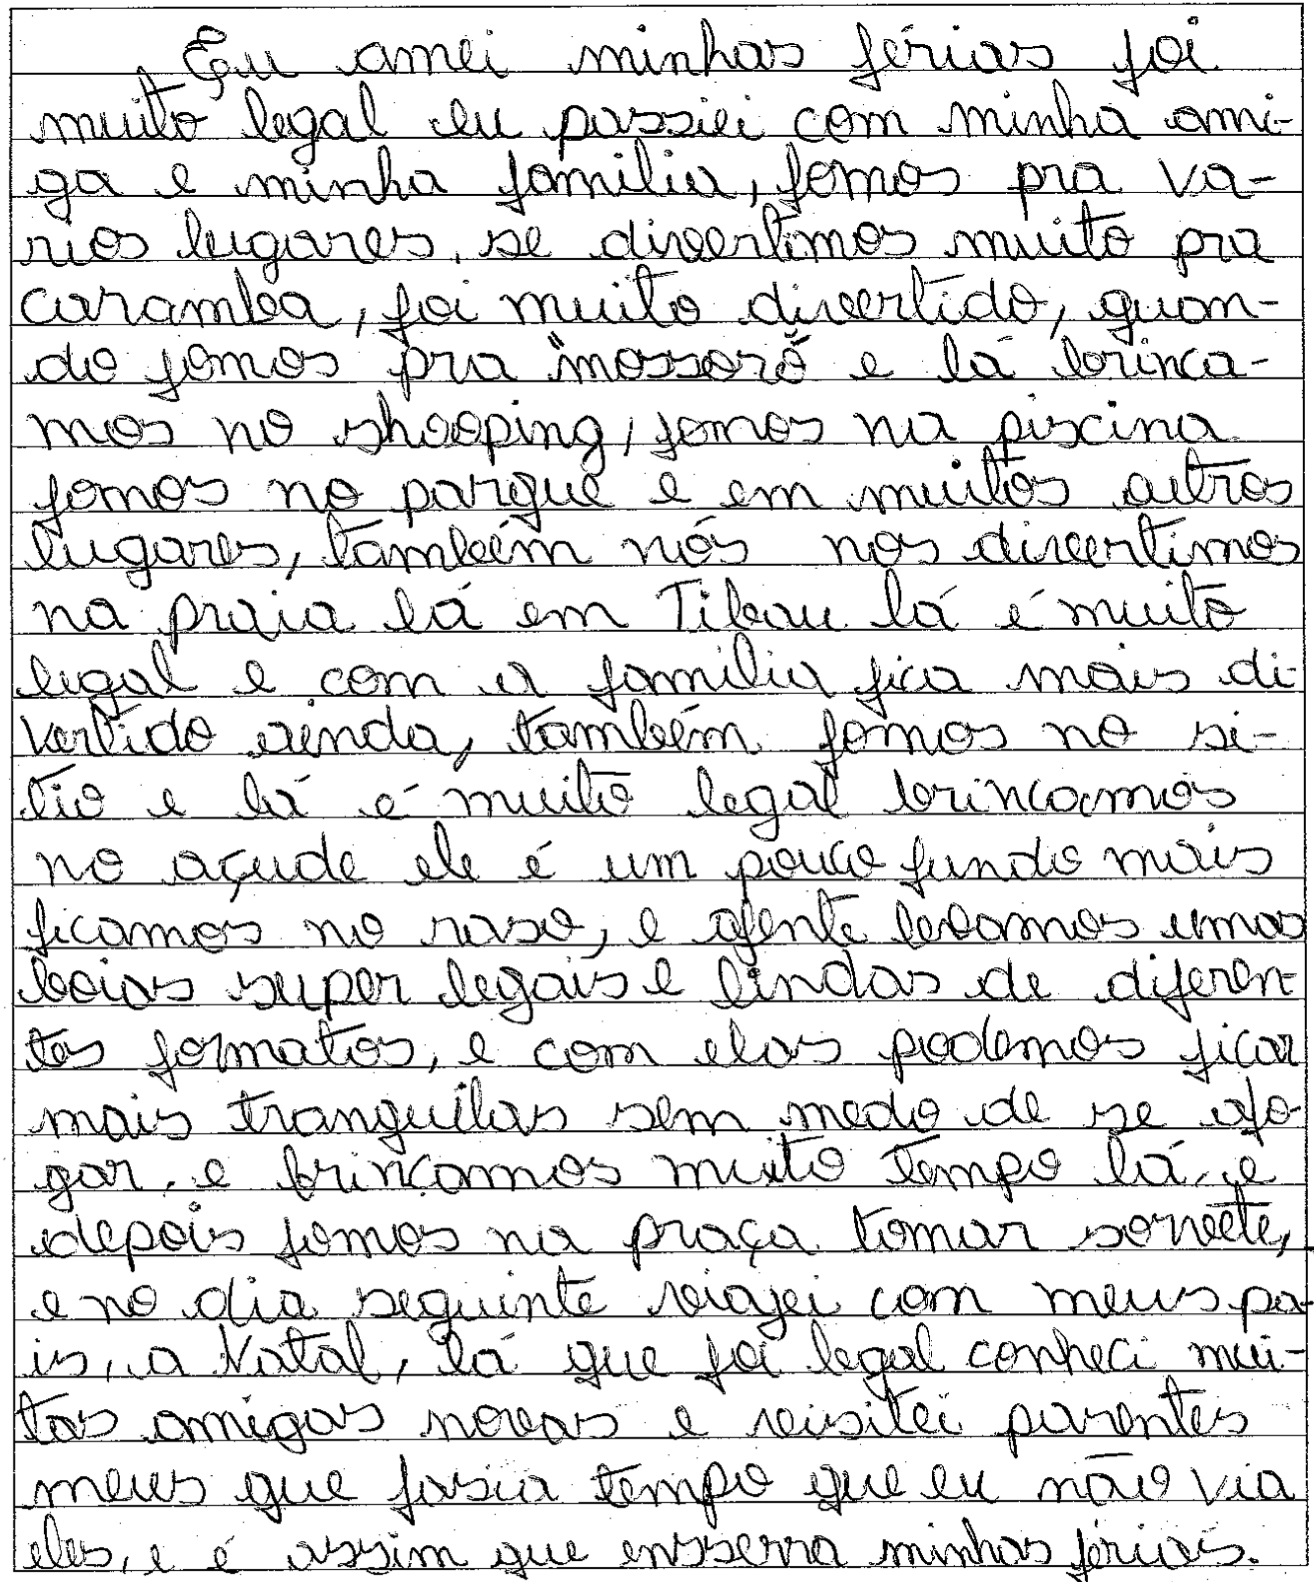 Eu amei minhas férias foi
muito legal eu passiei com minha ami-
ga e minha familia, fomos pra va-
rios lugares, se divertimos muito pra
caramba, foi muito divertido, quan-
do fomos pra "mossoró" e lá brinca-
mos no shooping, fomos na piscina
fomos no parque e em muitos outros
lugares, também nós nos divertimos
na praia lá em Tibau lá é muito
legal e com a familia fica mais di-
vertido ainda, também fomos no si-
tio e lá é muito legal brincamos
no açude ele é um pouco fundo mais
ficamos no raso, e agente levamos umas
boias super legais e lindas de diferen-
tes formatos, e com elas podemos ficar
mais tranquilas sem medo de se afo-
gar, e brincamos muito tempo lá, e
depois fomos na praça tomar sorvete,
e no dia seguinte viajei com meus pa-
is, a Natal, lá que foi legal conheci mui-
tas amigas novas e visitei parentes
meus que fasia tempo que eu não via
eles, e é assim que ensserra minhas férias.